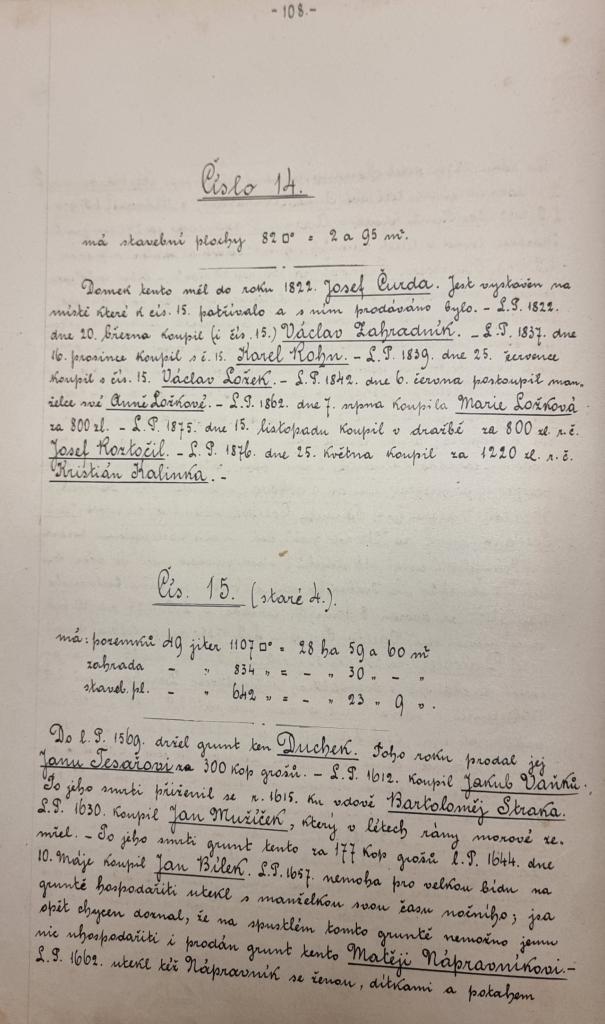 - 108. -
Číslo 14.
má stavební plochy 82 □° = 2 a 95 m².
Domek tento měl do roku 1822. Josef Čurda. Jest vystavěn na
místě které k čís. 15. patřívalo a s ním prodáváno bylo. - L.P. 1822.
dne 20. března koupil (i čís. 15.) Václav Zahradník. - L.P. 1837. dne
16. prosince koupil s č. 15. Karel Kohn. - L.P. 1839. dne 25. července
koupil s čís. 15. Václav Ložek. - L.P. 1842. dne 6. června postoupil man-
želce své Anně Ložkové. - L.P. 1862. dne 7. srpna koupila Marie Ložková
za 800 zl. - L.P. 1875. dne 15. listopadu koupil v dražbě za 800 zl. r. č.
Josef Roztočil. - L.P. 1876. dne 25. května koupil za 1220 zl. r. č.
Kristián Kalinka. -
Čís. 15. (staré 4.).
má: pozemků 49 jiter 1107 □° = 28 ha 59 a 60 m²
zahrada - " 834 " = - " 30 " - "
staveb. pl. - " 642 " = - " 23 " 9 ".
Do l. P. 1569. držel grunt ten Duchek. Toho roku prodal jej
Janu Tesařovi za 300 kop grošů. - L.P. 1612. koupil Jakub Vaňků.
Po jeho smrti přiženil se r. 1615. ku vdově Bartoloměj Straka.
L.P. 1630. koupil Jan Mužíček, který v létech rány morové ze-
mřel. - Po jeho smrti grunt tento za 177 kop grošů l. P. 1644. dne
10. Máje koupil Jan Bílek. L.P. 1657. nemoha pro velkou bídu na
gruntě hospodařiti utekl s manželkou svou času nočního; jsa
opět chycen doznal, že na spustlém tomto gruntě nemožno jemu
nic uhospodařiti i prodán grunt tento Matěji Nápravníkovi. -
L.P. 1662. utekl též Nápravník se ženou, dítkami a potahem